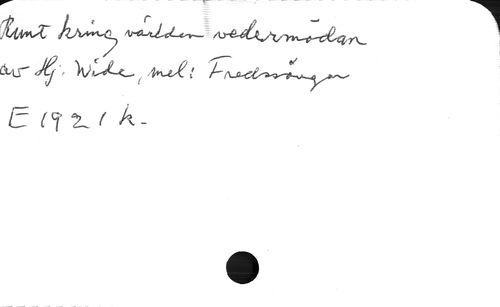 Runt kring världen vedermödan
av Hj. Wide, mel: Fredssången
E 1921 k.